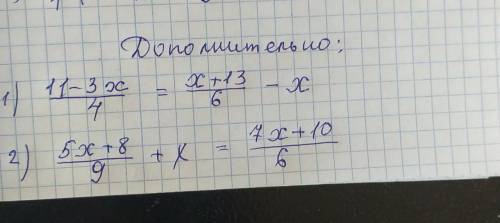 Дополнительно:
1) (11-3x)/4 = (x+13)/6 - x
2) (5x+8)/9 + x = (7x+10)/6